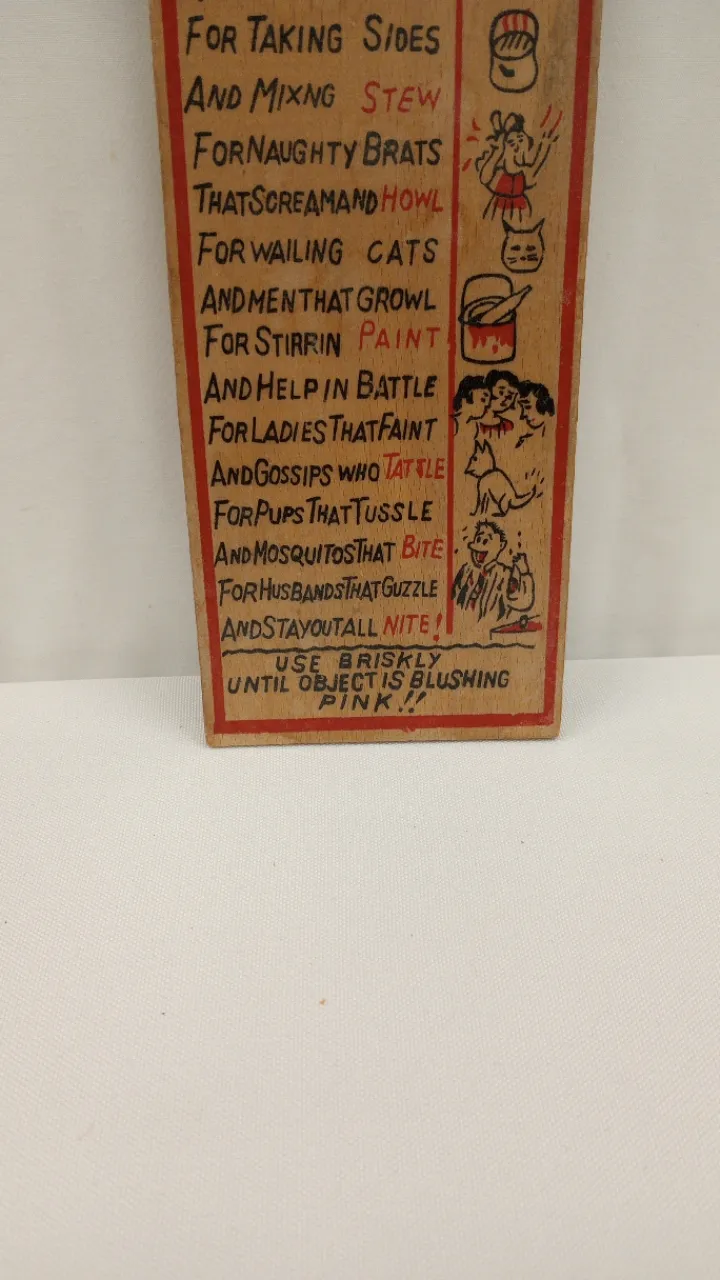 FOR TAKING SIDES
AND MIXNG STEW
FOR NAUGHTY BRATS
THAT SCREAM AND HOWL
FOR WAILING CATS
AND MEN THAT GROWL
FOR STIRRIN PAINT
AND HELP IN BATTLE
FOR LADIES THAT FAINT
AND GOSSIPS WHO TATTLE
FOR PUPS THAT TUSSLE
AND MOSQUITOS THAT BITE
FOR HUSBANDS THAT GUZZLE
AND STAY OUT ALL NITE!
USE BRISKLY
UNTIL OBJECT IS BLUSHING
PINK!!